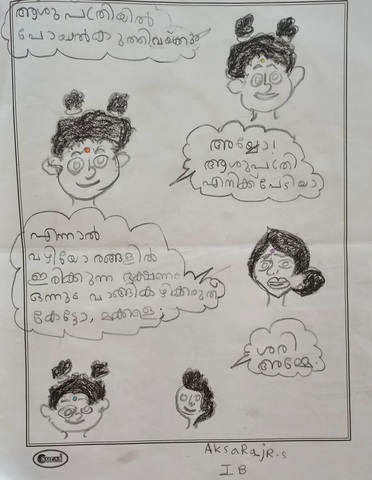 ആശുപത്രിയിൽ
പോയൽകുത്തിവയ്ക്കും
അയ്യോ!
ആശുപത്രി
എനിക്ക്പേടിയാ
എന്നാൽ
വഴിയോരങ്ങളിൽ
ഇരിക്കുന്ന ഭക്ഷണം
ഒന്നും വാങ്ങികഴിക്കരുത്
കേട്ടോ, മക്കളെ;
ശരി
അമ്മേ
AksaRajR.S
I B